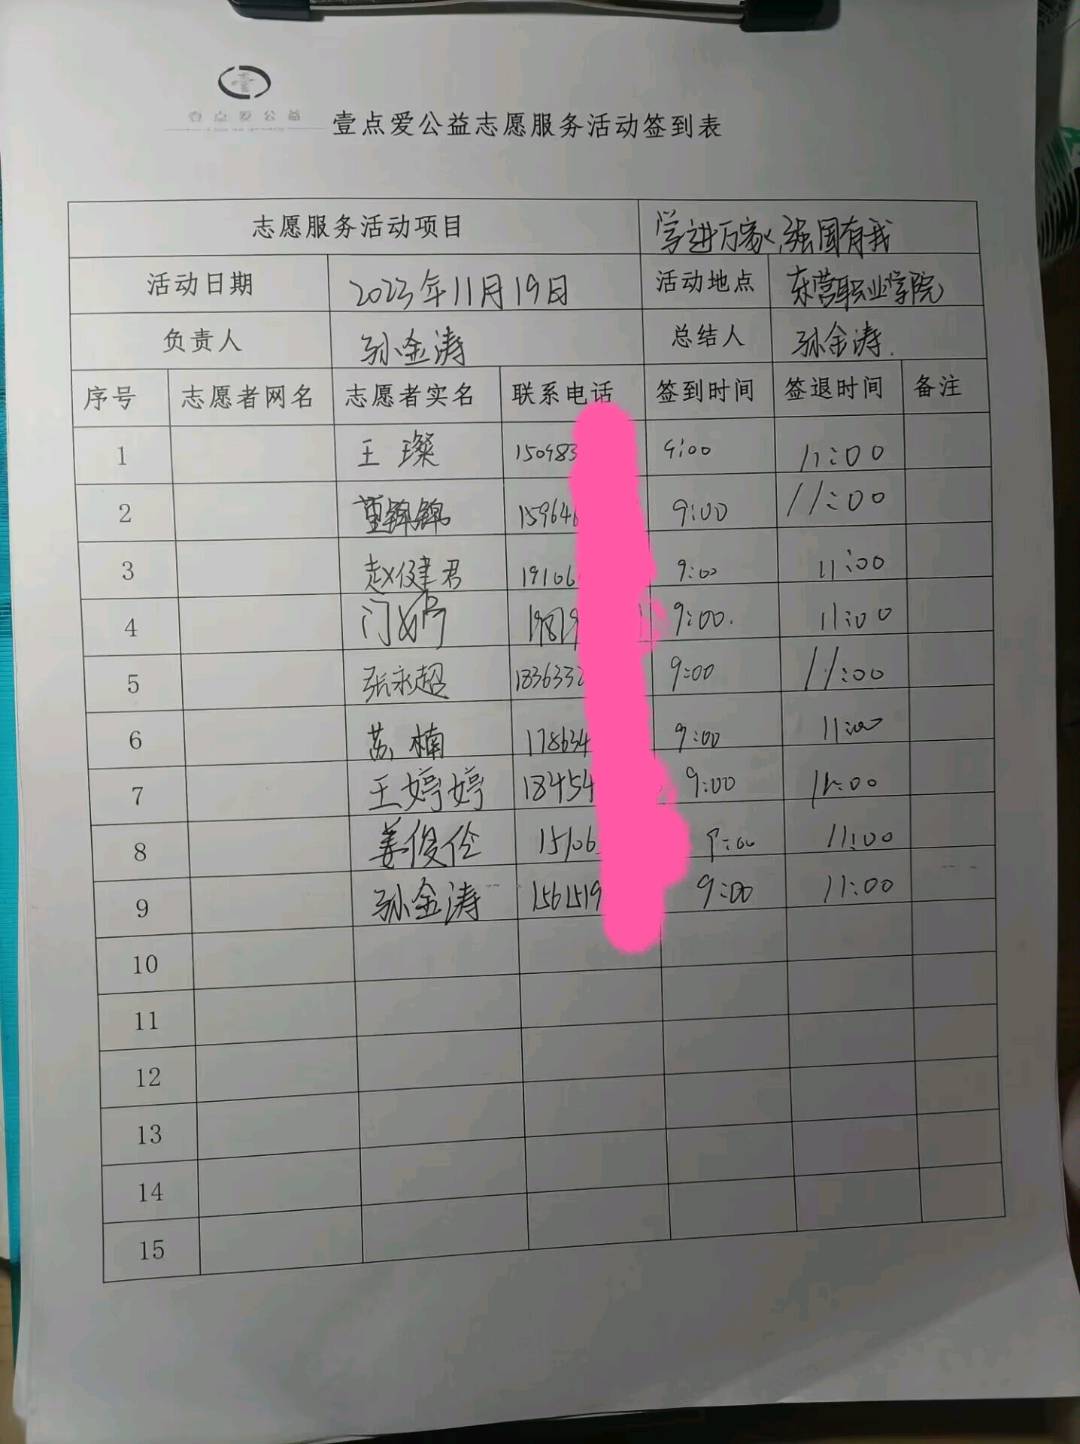 壹点爱公益
壹点爱公益志愿服务活动签到表
志愿服务活动项目 学进万家,强国有我
活动日期 2023年11月19日 活动地点 东营职业学院
负责人 孙金涛 总结人 孙金涛.
序号 志愿者网名 志愿者实名 联系电话 签到时间 签退时间 备注
1 王璨 150983 9:00 11:00
2 董锦锦 15964 9:00 11:00
3 赵健君 19106 9:00 11:00
4 门婷 1981 9:00. 11:00
5 张永超 1836332 9:00 11:00
6 苏楠 178634 9:00 11:00
7 王婷婷 18454 9:00 11:00
8 姜俊伶 15106 9:00 11:00
9 孙金涛 1561519 9:00 11:00
10
11
12
13
14
15